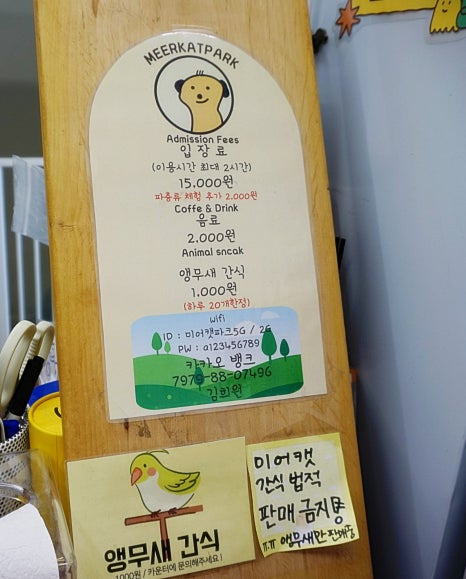 MEERKATPARK
Admission Fees
입장료
(이용시간 최대 2시간)
15.000원
파충류 체험 추가 2.000원
Coffe & Drink
음료
2.000원
Animal sncak
앵무새 간식
1.000원
(하루 20개한정)
wifi
ID : 미어캣파크5G / 2G
PW : a123456789
카카오 뱅크
7979-88-07496
김희원
앵무새 간식
1000원 / 카운터에 문의해주세요!
미어캣
간식 법적
판매 금지
ㅠㅠ 앵무새만 판매중